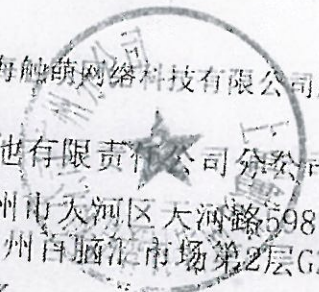 海触萌网络科技有限公司
也有限责任公司分公司
州市天河区天河路598
州百脑汇市场第2层G2